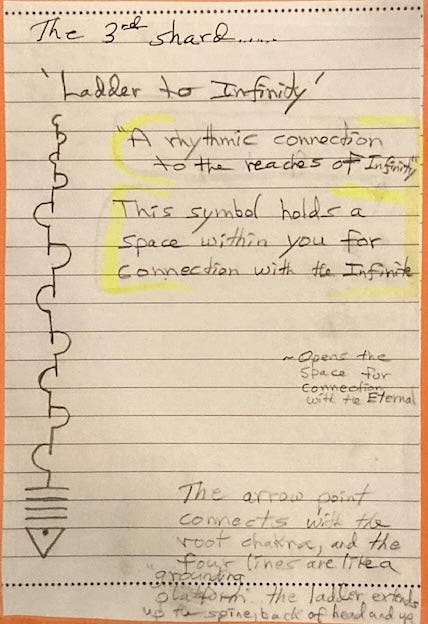 The 3rd shard......
'Ladder to Infinity'
"A rhythmic connection
to the reaches of Infinity"
This symbol holds a
space within you for
connection with the Infinite
~Opens the
space for
connection
with the Eternal
The arrow point
connects with the
root chakra, and the
four lines are like a
"grounding
platform. the ladder extends
up the spine, back of head and up